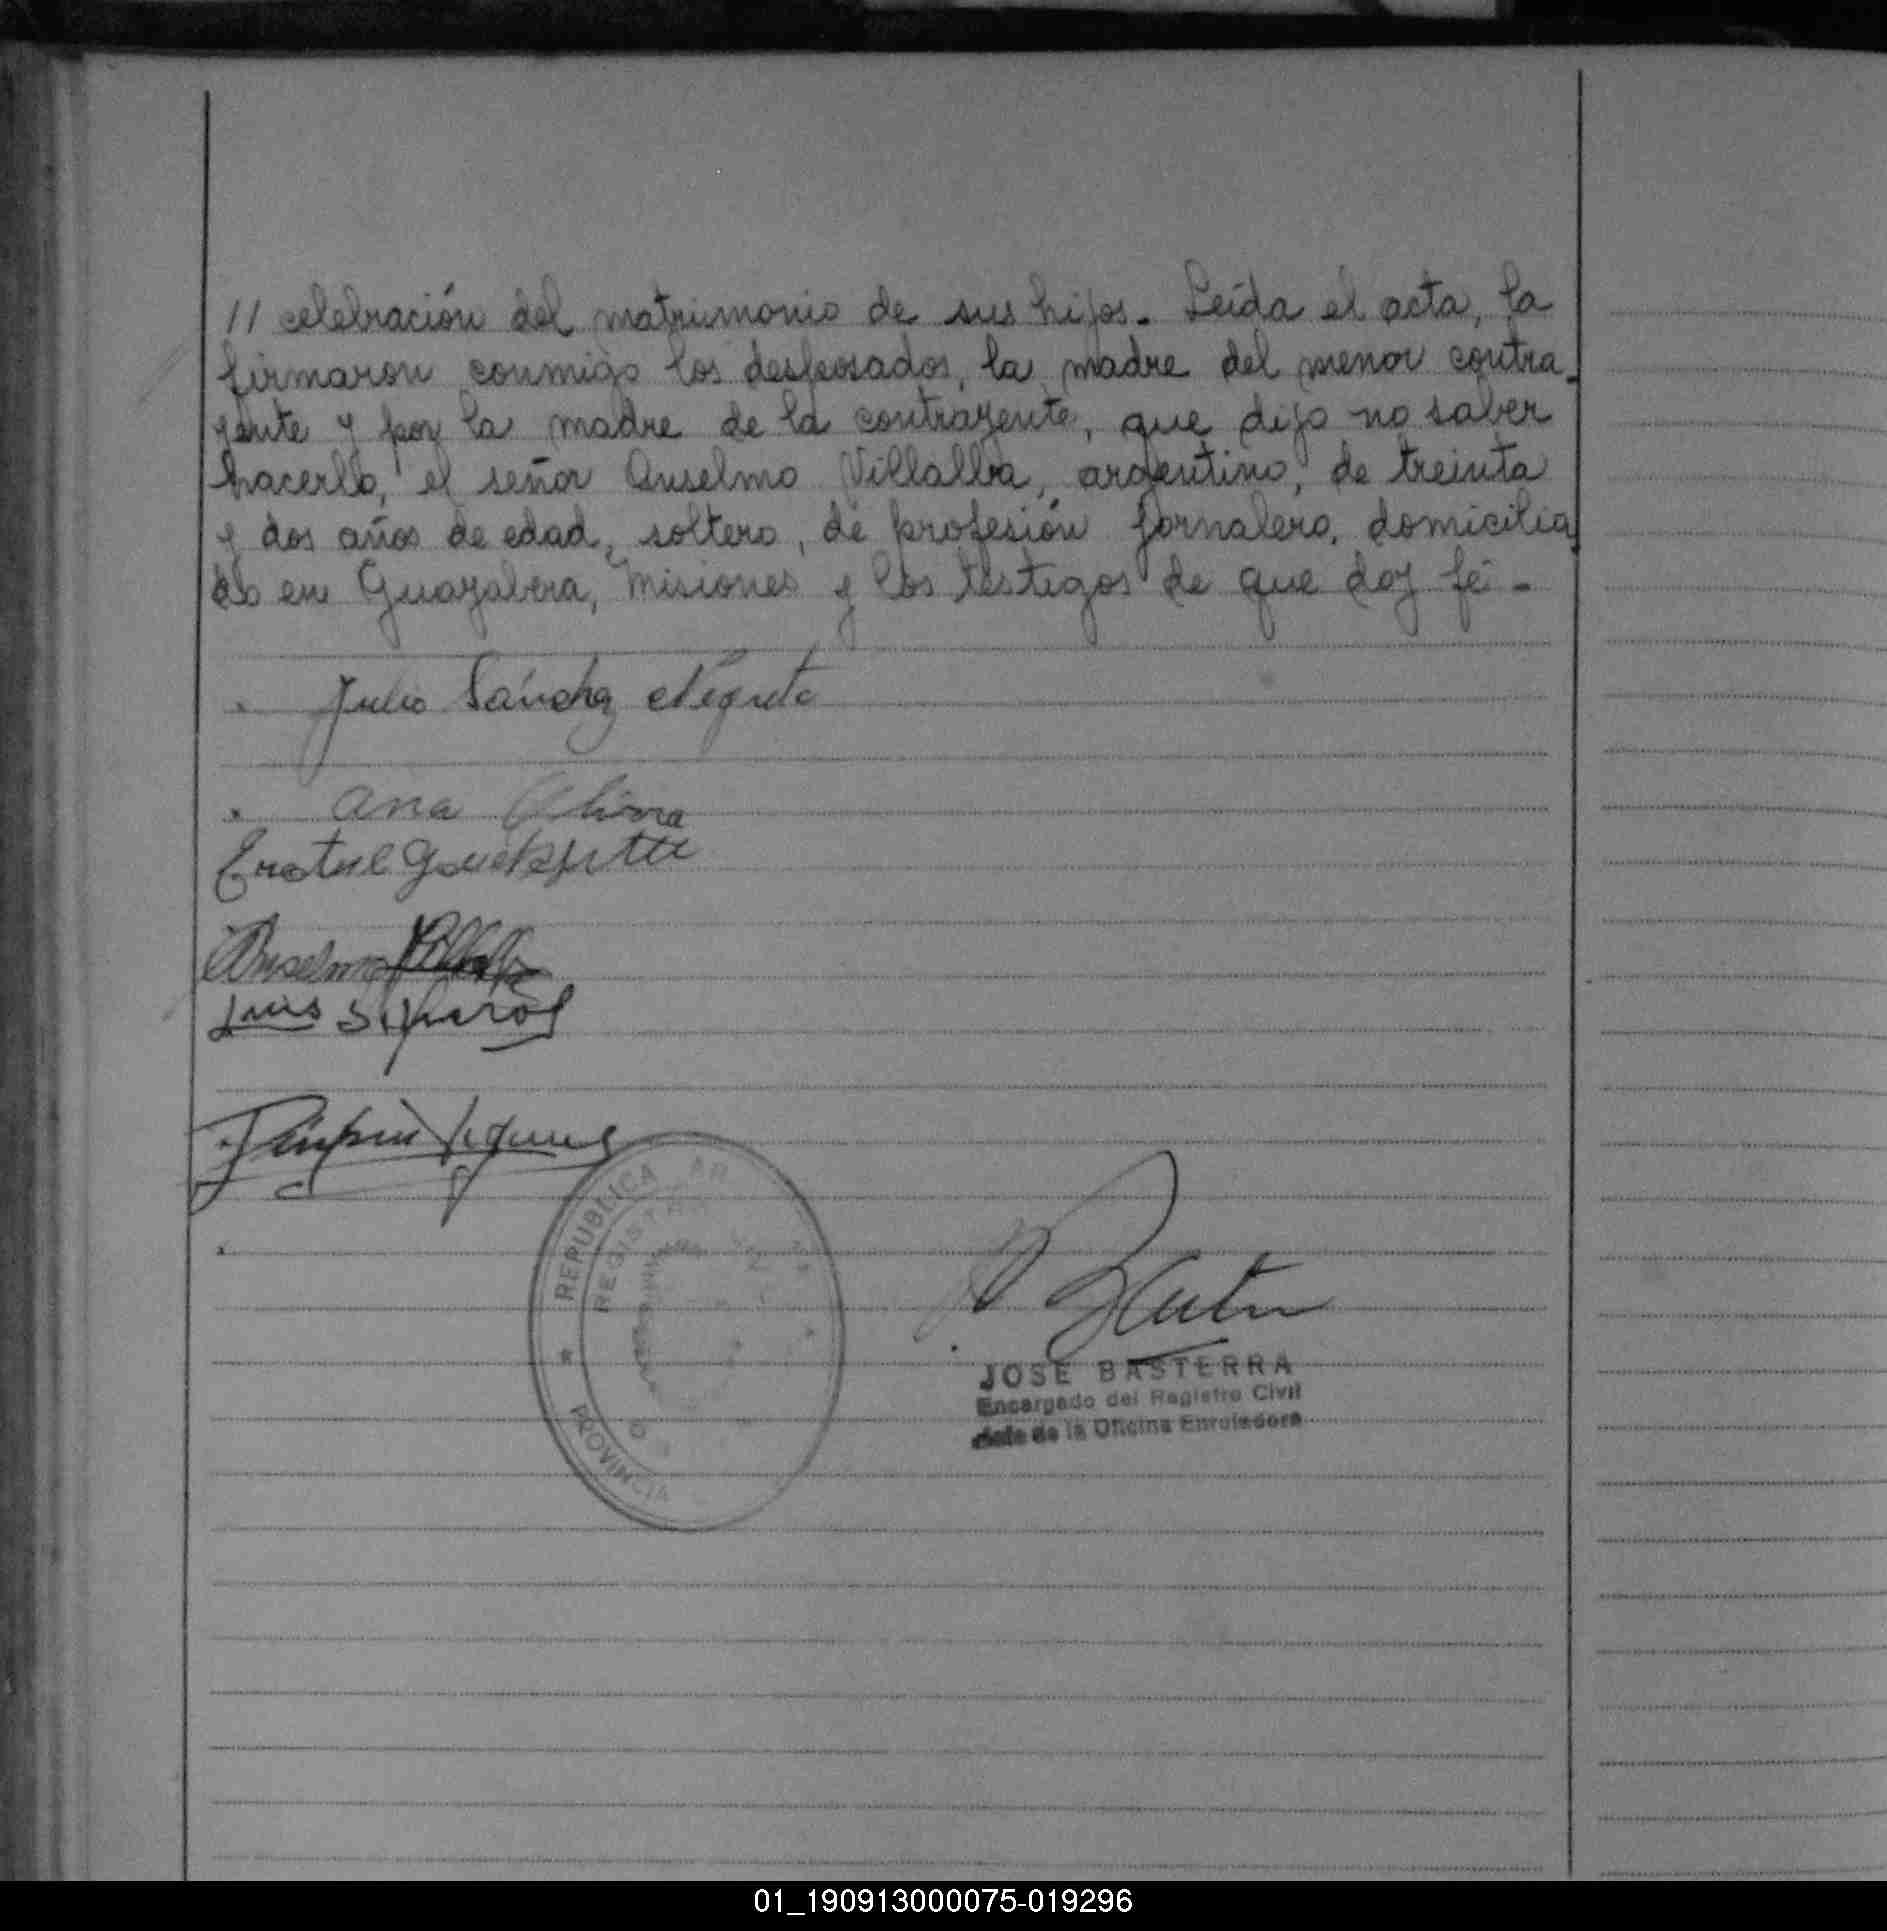 // celebración del matrimonio de sus hijos. Leída el acta, la
firmaron conmigo los desposados, la madre del menor contra-
yente y por la madre de la contrayente, que dijo no saber
hacerlo, el señor Anselmo Villalba, argentino, de treinta
y dos años de edad, soltero, de profesión jornalero, domicilia
do en Guayabera, Misiones y los testigos de que doy fé -
Julio Sánchez Negrete
Ana
Anselmo Villalba
Luis
REPUBLICA AR
REGISTRO
PROVINCIA
JOSE BASTERRA
Encargado del Registro Civil
Jefe de la Oficina Enroladora
01_190913000075-019296